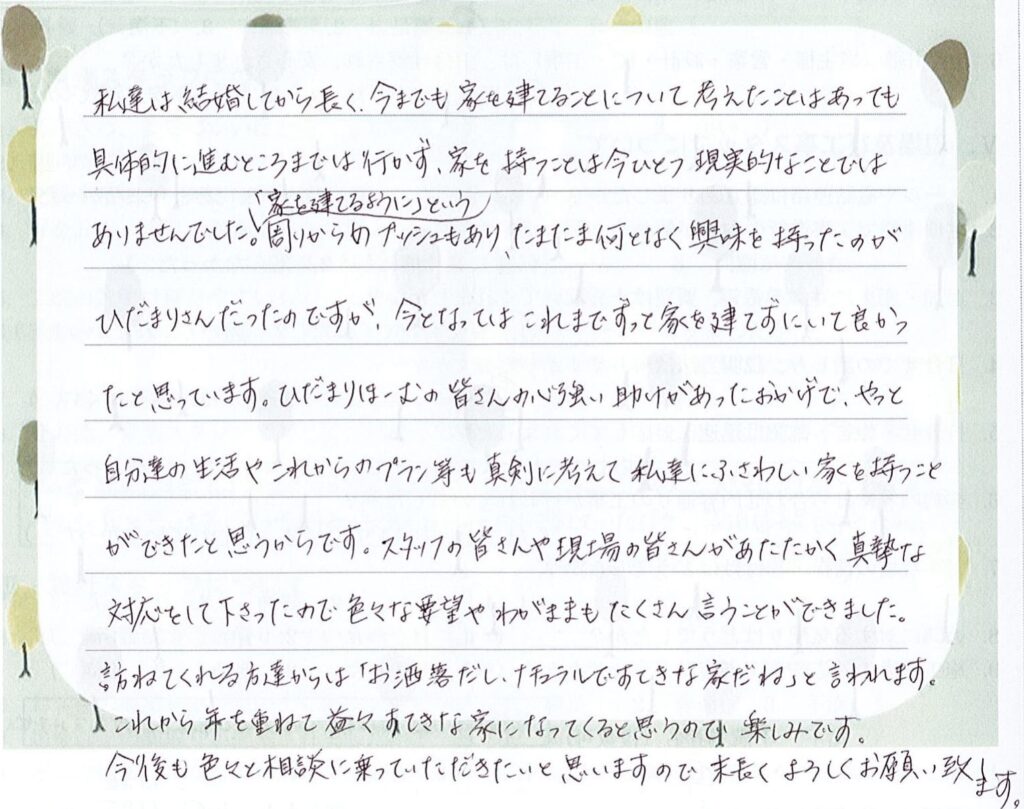 私達は結婚してから長く、今までも家を建てることについて考えたことはあっても
具体的に進むところまでは行かず、家を持つことは今ひとつ現実的なことでは
「家を建てるように」という
ありませんでした。周りからのプッシュもあり、たまたま何となく興味を持ったのが
ひだまりさんだったのですが、今となってはこれまでずっと家を建てずにいて良かっ
たと思っています。ひだまりほーむの皆さんの心強い助けがあったおかげで、やっと
自分達の生活やこれからのプラン等も真剣に考えて私達にふさわしい家くを持つこと
ができたと思うからです。スタッフの皆さんや現場の皆さんがあたたかく真摯な
対応をして下さったので色々な要望やわがままもたくさん言うことができました。
訪ねてくれる方達からは「お洒落だし、ナチュラルですてきな家だね」と言われます。
これから年を重ねて益々すてきな家になってくると思うので楽しみです。
今後も色々と相談に乗っていただきたいと思いますので末長くよろしくお願い致します。